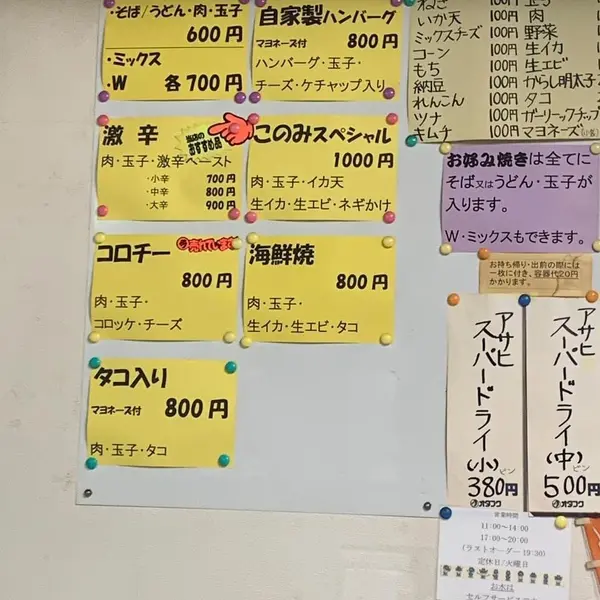 ・そば/うどん・肉・玉子
600円
・ミックス
・W 各700円
自家製ハンバーグ
マヨネーズ付 800円
ハンバーグ・玉子・
チーズ・ケチャップ入り
激辛
当店の
おすすめ品
肉・玉子・激辛ペースト
・小辛 700円
・中辛 800円
・大辛 900円
このみスペシャル
1000円
肉・玉子・イカ天
生イカ・生エビ・ネギかけ
コロチー
800円
肉・玉子・
コロッケ・チーズ
海鮮焼
800円
肉・玉子・
生イカ・生エビ・タコ
タコ入り
マヨネーズ付 800円
肉・玉子・タコ
ねぎ 100円
いか天 100円 肉
ミックスチーズ 100円 野菜
コーン 100円 生イカ
もち 100円 生エビ
納豆 100円 からし明太子
れんこん 100円 タコ
ツナ 100円 ガーリックチップ
キムチ 100円 マヨネーズ
お好み焼きは全てに
そば又はうどん・玉子が
入ります。
W・ミックスもできます。
お持ち帰り・出前の際には
一枚に付き、容器代20円
かかります。
アサヒ
スーパードライ
(小)ビン
380円
オタフク
アサヒ
スーパードライ
(中)ビン
500円
オタフク
営業時間
11:00～14:00
17:00～20:00
(ラストオーダー 19:30)
定休日/火曜日
お水は
セルフサービス